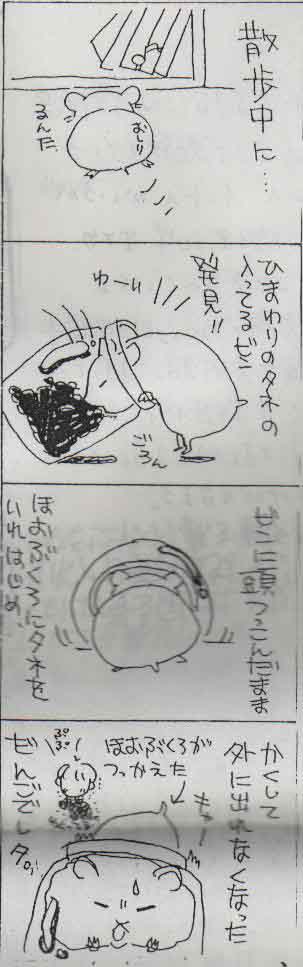 散歩中に…
おしり
るんた
ひまわりのタネの
入ってるビン
発見!!
わーい
ごろん
ビンに頭つっこんだまま
ほおぶくろにタネを
いれはじめ、
かくして
外に出れなくなった
もきゃー
ほおぶくろが
つっかえた
ぷぷー
ぜんごでしタ。